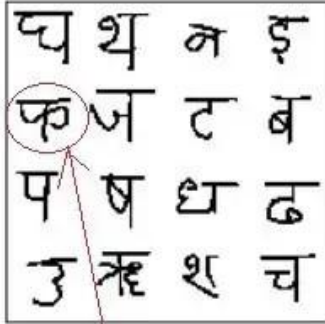 घ थ न ङ
फ ज ट ब
प ष ध ढ
उ ऋ श च